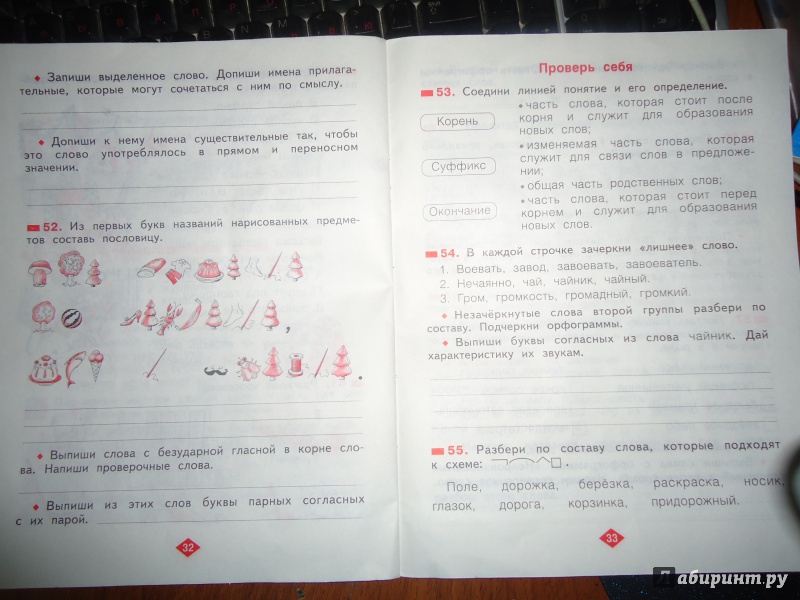 ♦ Запиши выделенное слово. Допиши имена прилага-
тельные, которые могут сочетаться с ним по смыслу.
♦ Допиши к нему имена существительные так, чтобы
это слово употреблялось в прямом и переносном
значении.
52. Из первых букв названий нарисованных предме-
тов составь пословицу.
,
.
♦ Выпиши слова с безударной гласной в корне сло-
ва. Напиши проверочные слова.
♦ Выпиши из этих слов буквы парных согласных
с их парой.
32
Проверь себя
53. Соедини линией понятие и его определение.
Корень
Суффикс
Окончание
• часть слова, которая стоит после
корня и служит для образования
новых слов;
• изменяемая часть слова, которая
служит для связи слов в предложе-
нии;
• общая часть родственных слов;
• часть слова, которая стоит перед
корнем и служит для образования
новых слов.
54. В каждой строчке зачеркни «лишнее» слово.
1. Воевать, завод, завоевать, завоеватель.
2. Нечаянно, чай, чайник, чайный.
3. Гром, громкость, громадный, громкий.
♦ Незачёркнутые слова второй группы разбери по
составу. Подчеркни орфограммы.
♦ Выпиши буквы согласных из слова чайник. Дай
характеристику их звукам.
55. Разбери по составу слова, которые подходят
к схеме: .
Поле, дорожка, берёзка, раскраска, носик,
глазок, дорога, корзинка, придорожный.
33
Лабиринт.ру